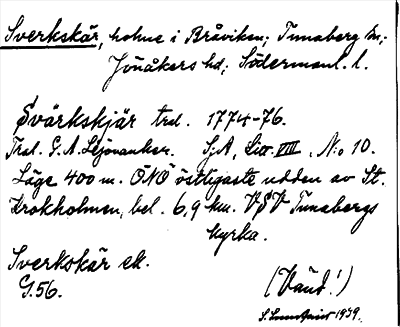 Sverkskär, holme i Bråviken; Tunaberg sn;
Jönåkers hd; Södermanl. l.
Svärkskjär trol. 1774-76.
Tral. G. A. Lejonanker. SjA, Litt. VIII, N:o 10.
Läge 400 m. ONO östligaste udden av St.
Krokholmen, bel. 6,9 km. VSV Tunabergs
kyrka.
Sverkskär ek.
G.56.
(Vänd!)
1939.